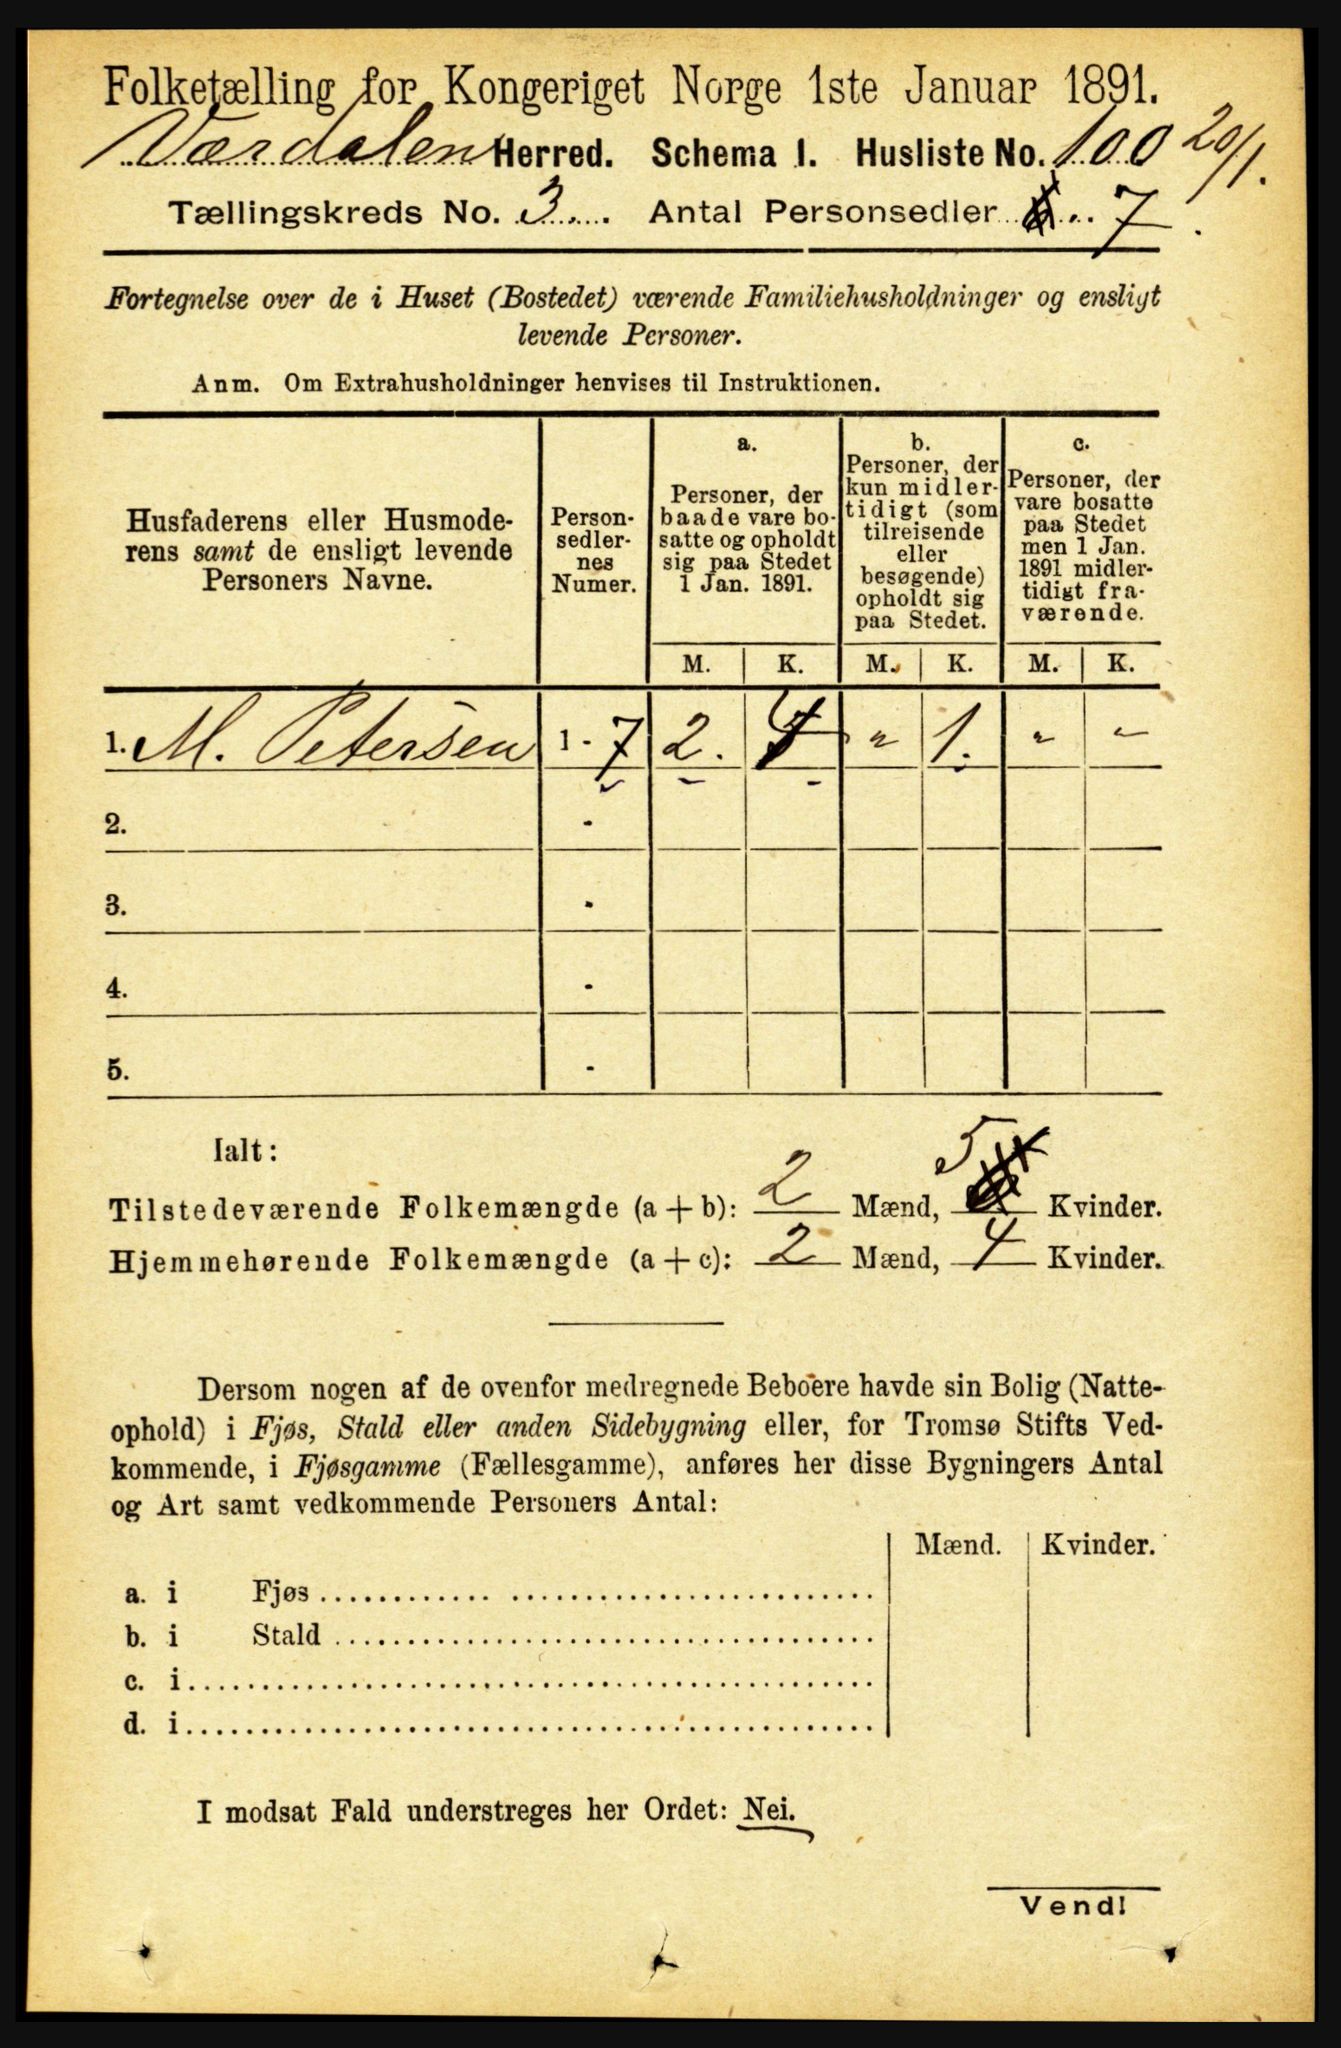 Folketælling for Kongeriget Norge 1ste Januar 1891.
Værdalen Herred. Schema I. Husliste No. 100 20/1.
Tællingskreds No. 3. Antal Personsedler 7.
Fortegnelse over de i Huset (Bostedet) værende Familiehusholdninger og ensligt
levende Personer.
Anm. Om Extrahusholdninger henvises til Instruktionen.
Husfaderens eller Husmode-
rens samt de ensligt levende
Personers Navne.
Person-
sedler-
nes
Numer.
a.
Personer, der
baade vare bo-
satte og opholdt
sig paa Stedet
1 Jan. 1891.
b.
Personer, der
kun midler-
tidigt (som
tilreisende
eller
besøgende)
opholdt sig
paa Stedet.
c.
Personer, der
vare bosatte
paa Stedet
men 1 Jan.
1891 midler-
tidigt fra-
værende.
M. K. M. K. M. K.
1. M. Petersen 1 - 7 2. 4 " 1. " "
2. -
3. -
4. -
5. -
Ialt:
Tilstedeværende Folkemængde (a + b): 2 Mænd, 5 Kvinder.
Hjemmehørende Folkemængde (a + c): 2 Mænd, 4 Kvinder.
Dersom nogen af de ovenfor medregnede Beboere havde sin Bolig (Natte-
ophold) i Fjøs, Stald eller anden Sidebygning eller, for Tromsø Stifts Ved-
kommende, i Fjøsgamme (Fællesgamme), anføres her disse Bygningers Antal
og Art samt vedkommende Personers Antal:
Mænd. Kvinder.
a. i Fjøs
b. i Stald
c. i
d. i
I modsat Fald understreges her Ordet: Nei.
Vend!